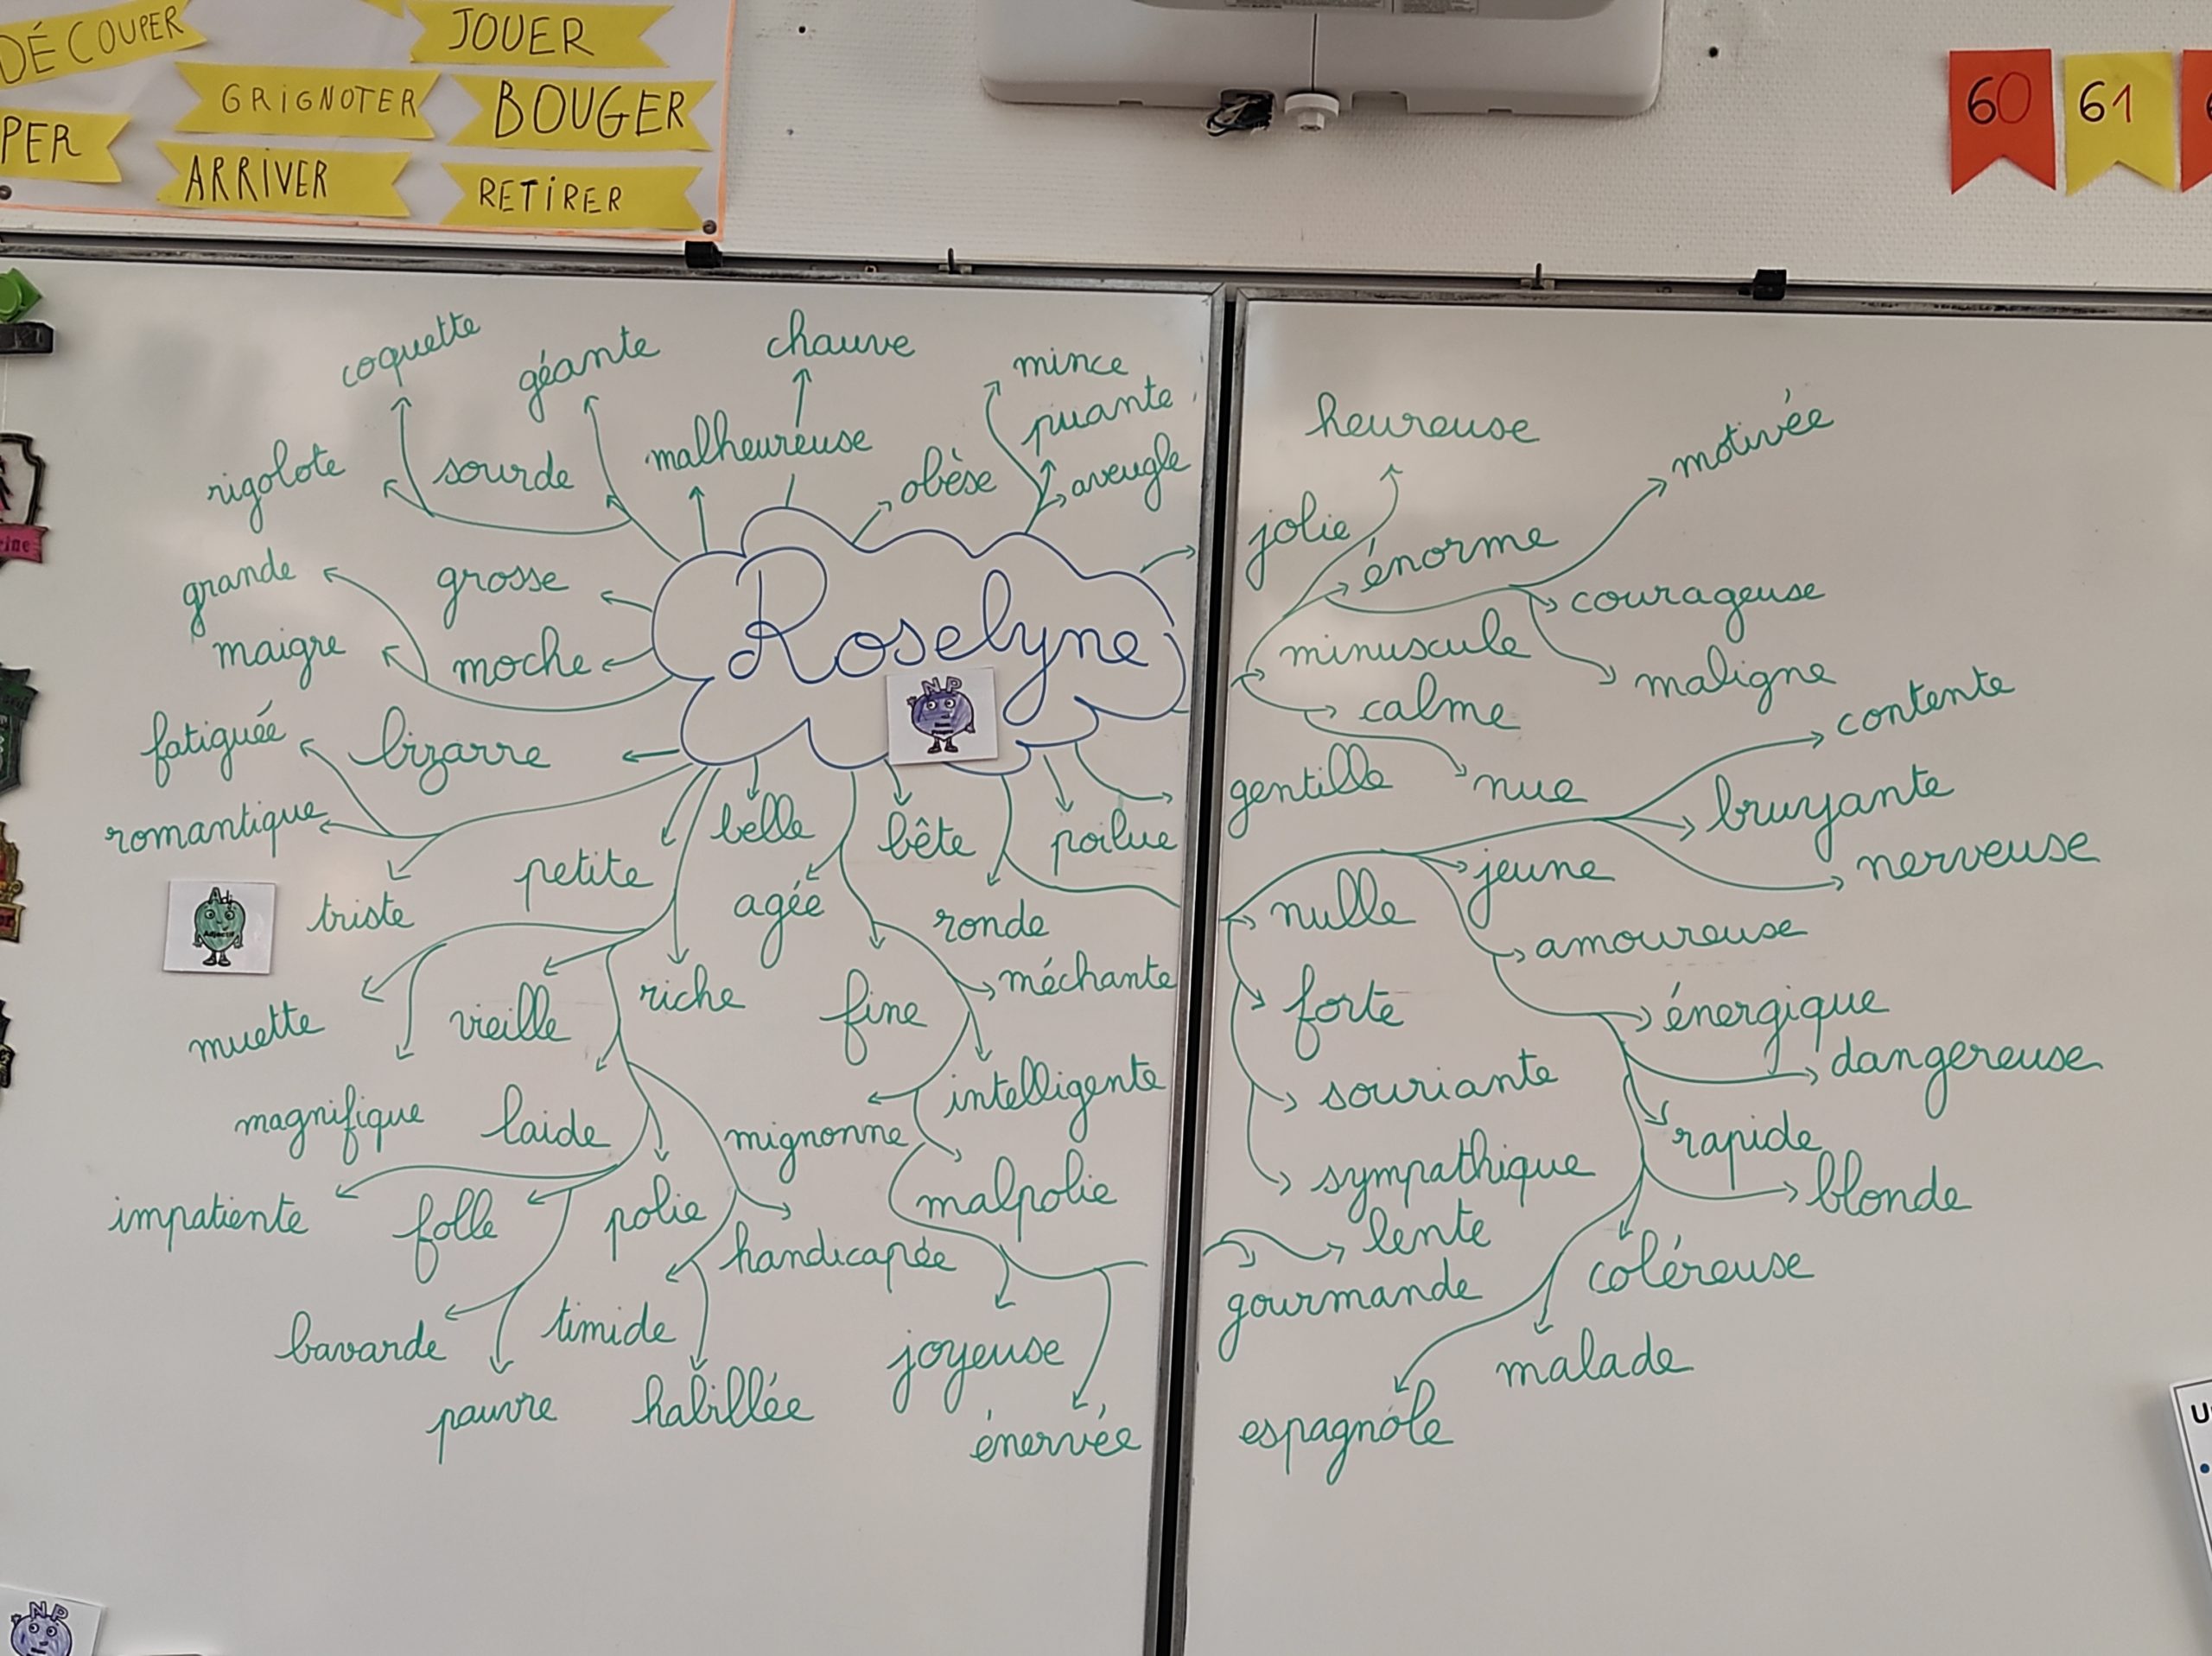 DÉCOUPER
JOUER
GRIGNOTER
BOUGER
PER
ARRIVER
RETIRER
60
61
coquette
géante
chauve
mince
puante
rigolote
sourde
malheureuse
obèse
aveugle
grande
grosse
maigre
moche
Roselyne
NP
fatiguée
bizarre
romantique
triste
Adj
Adjectif
petite
belle
agée
bête
poilue
ronde
muette
vieille
riche
fine
méchante
magnifique
laide
mignonne
intelligente
impatiente
folle
polie
handicapée
malpolie
bavarde
timide
joyeuse
pauvre
habillée
énervée
heureuse
motivée
jolie
énorme
courageuse
minuscule
maligne
calme
contente
gentille
nue
bruyante
jeune
nerveuse
nulle
amoureuse
forte
énergique
dangereuse
souriante
rapide
sympathique
blonde
lente
coléreuse
gourmande
malade
espagnole
NP